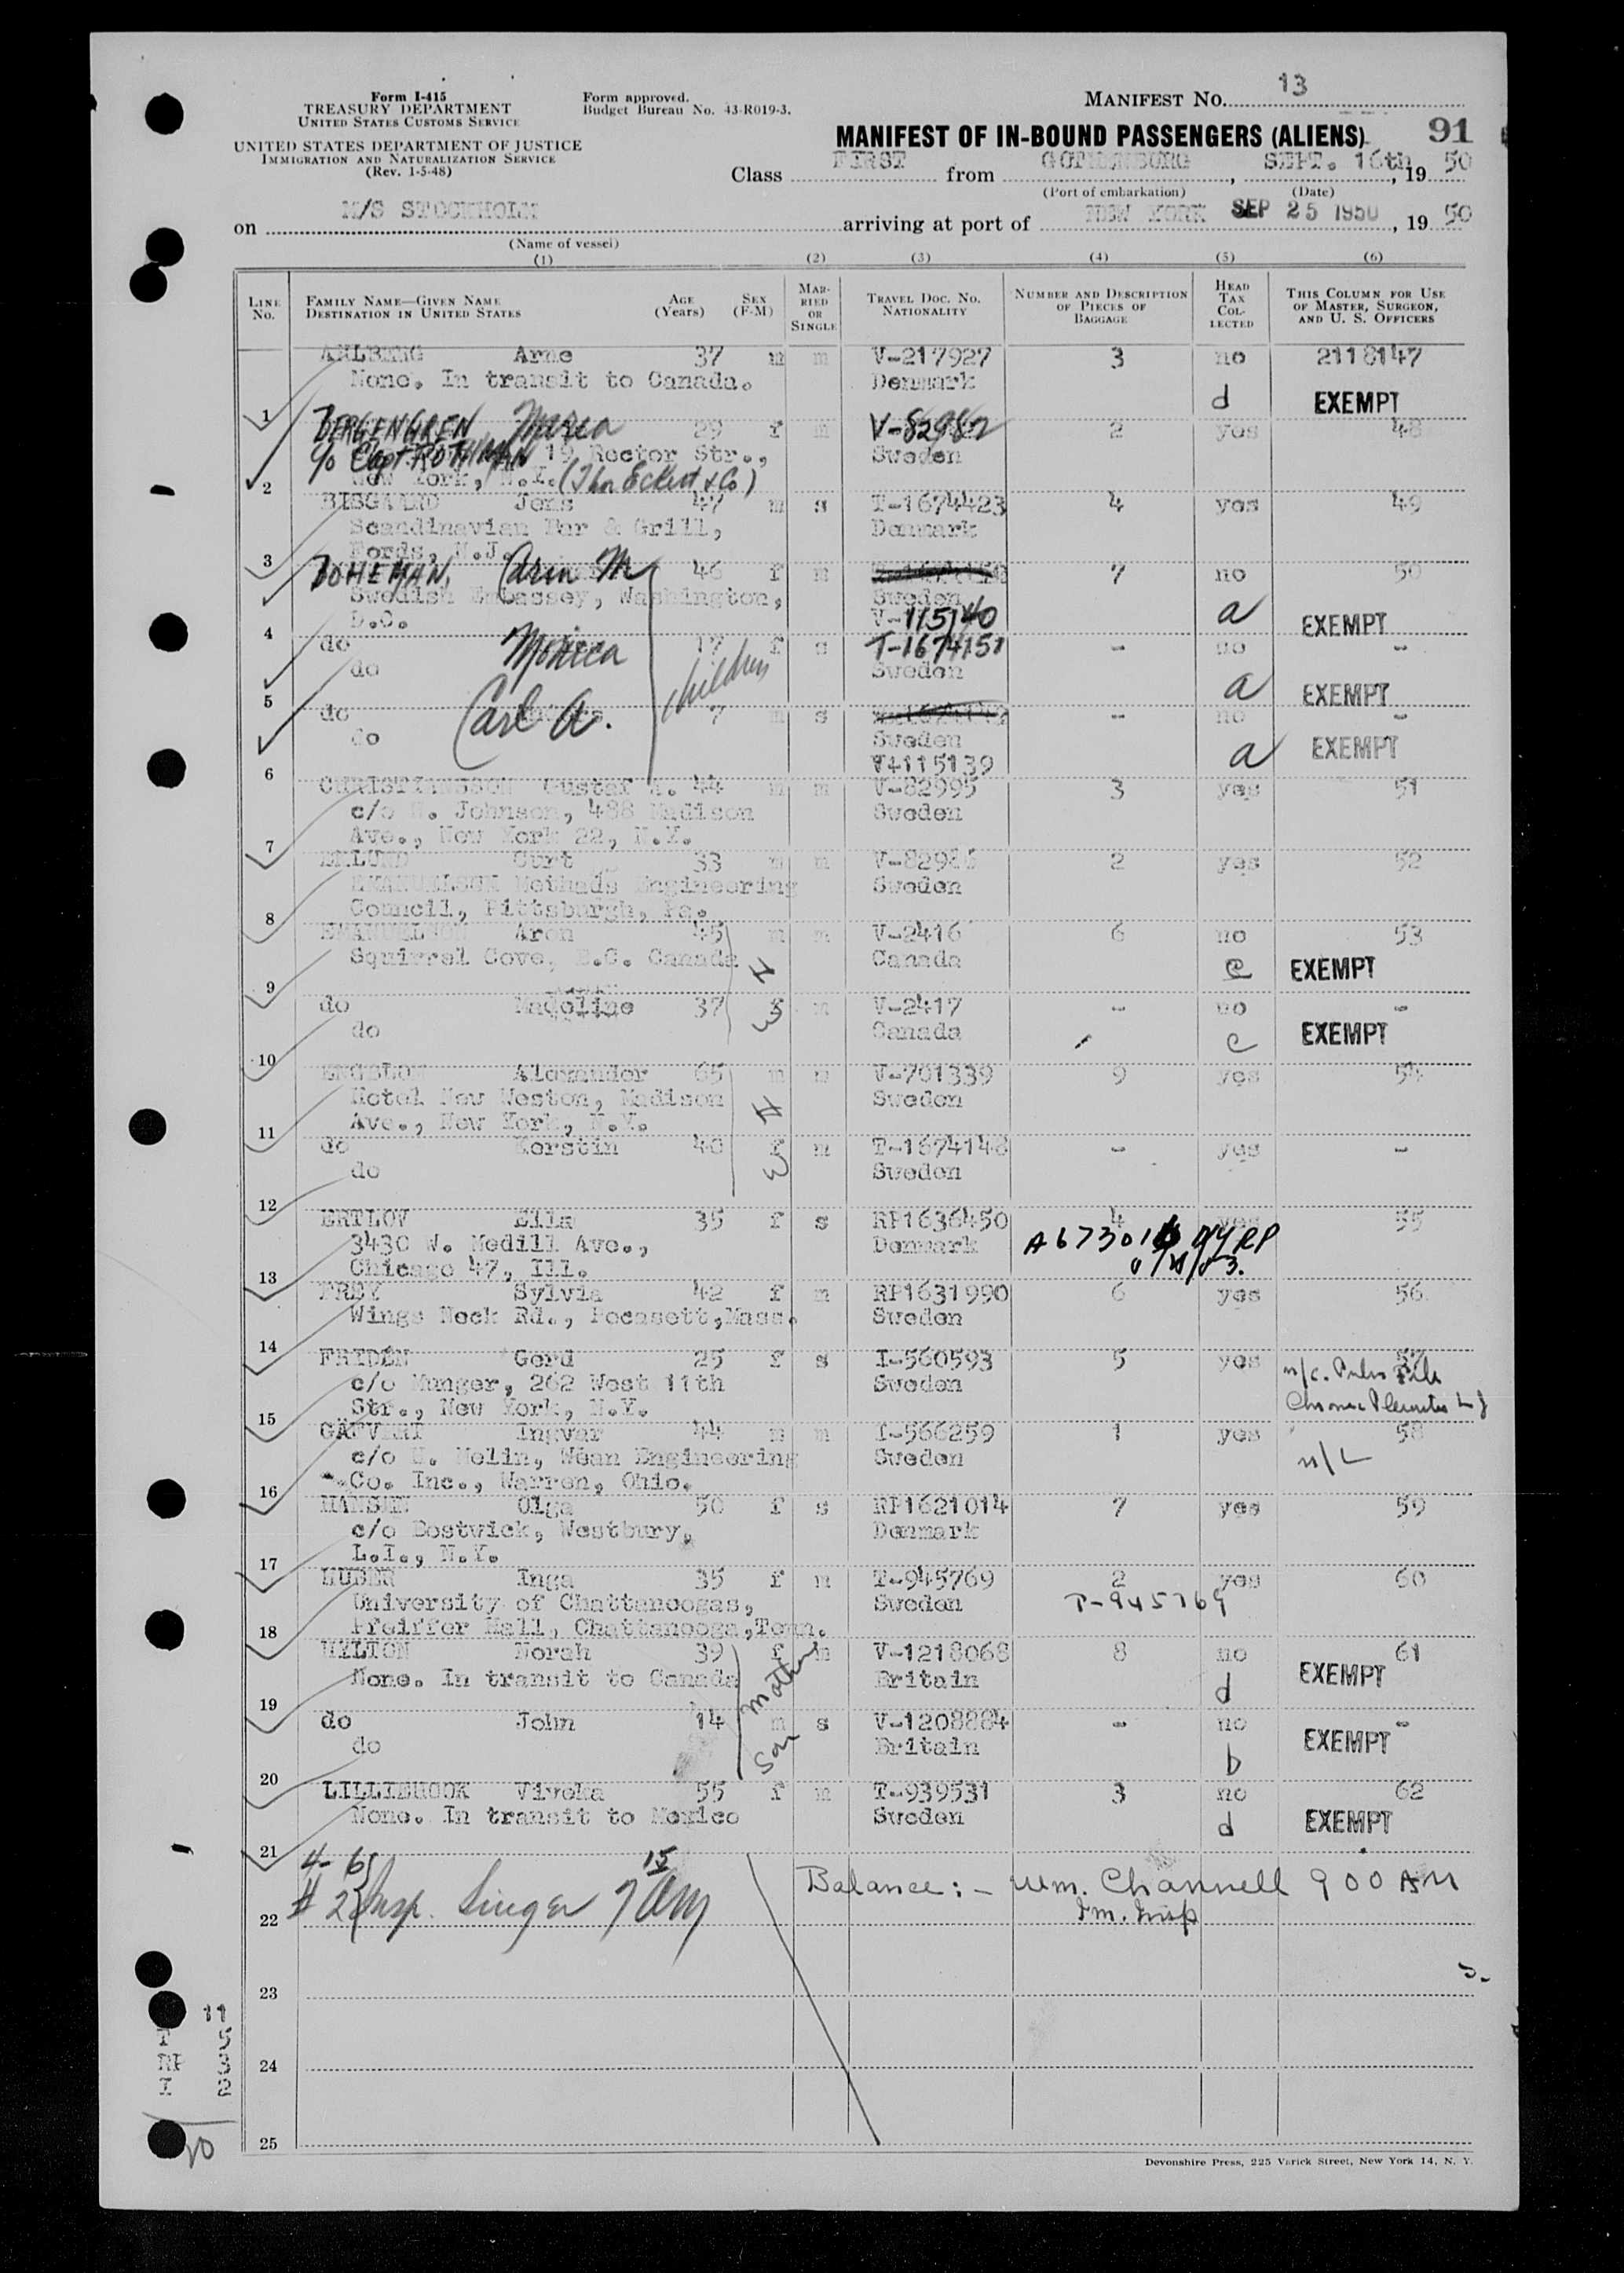 Form I-415
TREASURY DEPARTMENT
UNITED STATES CUSTOMS SERVICE
UNITED STATES DEPARTMENT OF JUSTICE
IMMIGRATION AND NATURALIZATION SERVICE
(Rev. 1-5-48)
Form approved.
Budget Bureau No. 43-R019-3.
MANIFEST NO. 13
MANIFEST OF IN-BOUND PASSENGERS (ALIENS) 91
Class FIRST from GOTHENBURG, SEPT. 16th, 19 50
(Port of embarkation) (Date)
on M/S STOCKHOLM arriving at port of NEW YORK SEP 25 1950, 19 50
(Name of vessel)
(1) (2) (3) (4) (5) (6)
LINE NO. FAMILY NAME—GIVEN NAME DESTINATION IN UNITED STATES AGE (Years) SEX (F-M) MARRIED OR SINGLE TRAVEL DOC. NO. NATIONALITY NUMBER AND DESCRIPTION OF PIECES OF BAGGAGE HEAD TAX COLLECTED THIS COLUMN FOR USE OF MASTER, SURGEON, AND U. S. OFFICERS
AHLBERG Arne 37 m m V-217927 3 no 2118147
None. In transit to Canada. Denmark
1 d EXEMPT
BERGENGREN Maria 29 f m V-82982 2 yes 48
c/o Capt. ROTHMAN 19 Rector Str., Sweden
2 New York, N.Y. (Thor Eckert & Co)
BISGAARD Jens 47 m s T-1674423 4 yes 49
Scandinavian Bar & Grill, Denmark
3 Fords, N.J.
BOHEMAN, Carin M 46 f m 7 no 50
Swedish Embassey, Washington, Sweden
4 D.C. V-115140 a EXEMPT
do Monica 17 f s T-1674151 - no -
do Sweden
5 a EXEMPT
do Carl A. 7 m s - no -
do Sweden
6 V-115139 a EXEMPT
children
CHRISTIANSSON Gustaf A. 44 m m V-82995 3 yes 51
c/o N. Johnson, 488 Madison Sweden
7 Ave., New York 22, N.Y.
EKLUND Curt 33 m m V-82986 2 yes 52
Methods Engineering Sweden
8 Council, Pittsburgh, Pa.
EMANUELSON Aron 45 m m V-2416 6 no 53
Squirrel Cove, B.C. Canada H Canada
9 e EXEMPT
do Madeline 37 f m V-2417 - no -
do W Canada
10 e EXEMPT
ENGBLOM Alexander 65 m m V-701339 9 yes 54
Hotel New Weston, Madison H Sweden
11 Ave., New York, N.Y.
do Kerstin 40 f m T-1674148 - yes -
do W Sweden
12
ERTLOV Ella 35 f s RP1636450 4 yes 55
3430 W. Medill Ave., Denmark
13 Chicago 47, Ill.
FREY Sylvia 42 f m RP1631990 6 yes 56
Wings Neck Rd., Pocasett, Mass. Sweden
14
FRIDÉN Gerd 25 f s I-560593 5 yes 57
c/o Munger, 262 West 11th Sweden
15 Str., New York, N.Y.
GÄFVERT Ingvar 44 m m I-566259 1 yes 58
c/o U. Melin, Wean Engineering Sweden
16 Co. Inc., Warren, Ohio.
HANSEN Olga 50 f s RP1621014 7 yes 59
c/o Bostwick, Westbury, Denmark
17 L.I., N.Y.
HUBER Inga 35 f m T-945769 2 yes 60
University of Chattanoogas, Sweden T-945769
18 Pfeiffer Hall, Chattanooga, Tenn.
HYLTON Norah 39 f m V-1218068 8 no 61
None. In transit to Canada mother Britain
19 d EXEMPT
do John 14 m s V-1208884 - no -
do Son Britain
20 b EXEMPT
LILLIEHOOK Viveka 55 f m T-939531 3 no 62
None. In transit to Mexico Sweden
21 d EXEMPT
4-6
# 2 Insp. Singer 7 15 AM Balance:- Wm. Channell 9 00 AM
22 Im. Insp
23
24
25
Devonshire Press, 225 Varick Street, New York 14, N. Y.